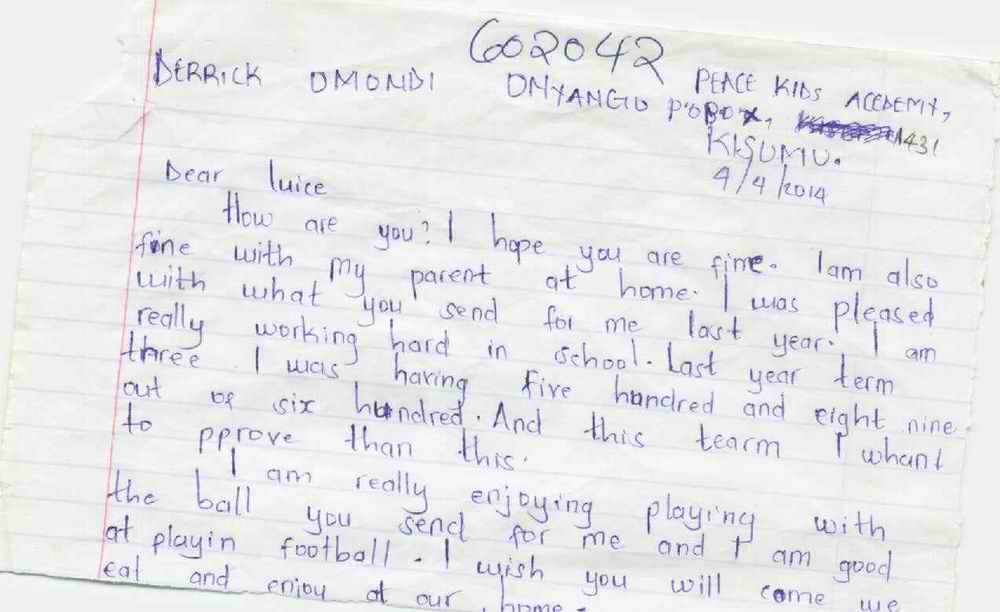 602042
DERRICK OMONDI ONYANGO
PEACE KIDS ACCEDEMY,
P.O BOX, 1431
KISUMU.
4/4/2014
Dear luice
How are you? I hope you are fine. Iam also
fine with my parent at home. I was pleased
with what you send for me last year. I am
really working hard in school. Last year term
three I was having five hundred and eight nine
out of six hundred. And this tearm I whant
to pprove than this.
I am really enjoying playing with
the ball you send for me and I am good
at playin football. I wish you will come we
eat and enjoy at our home.